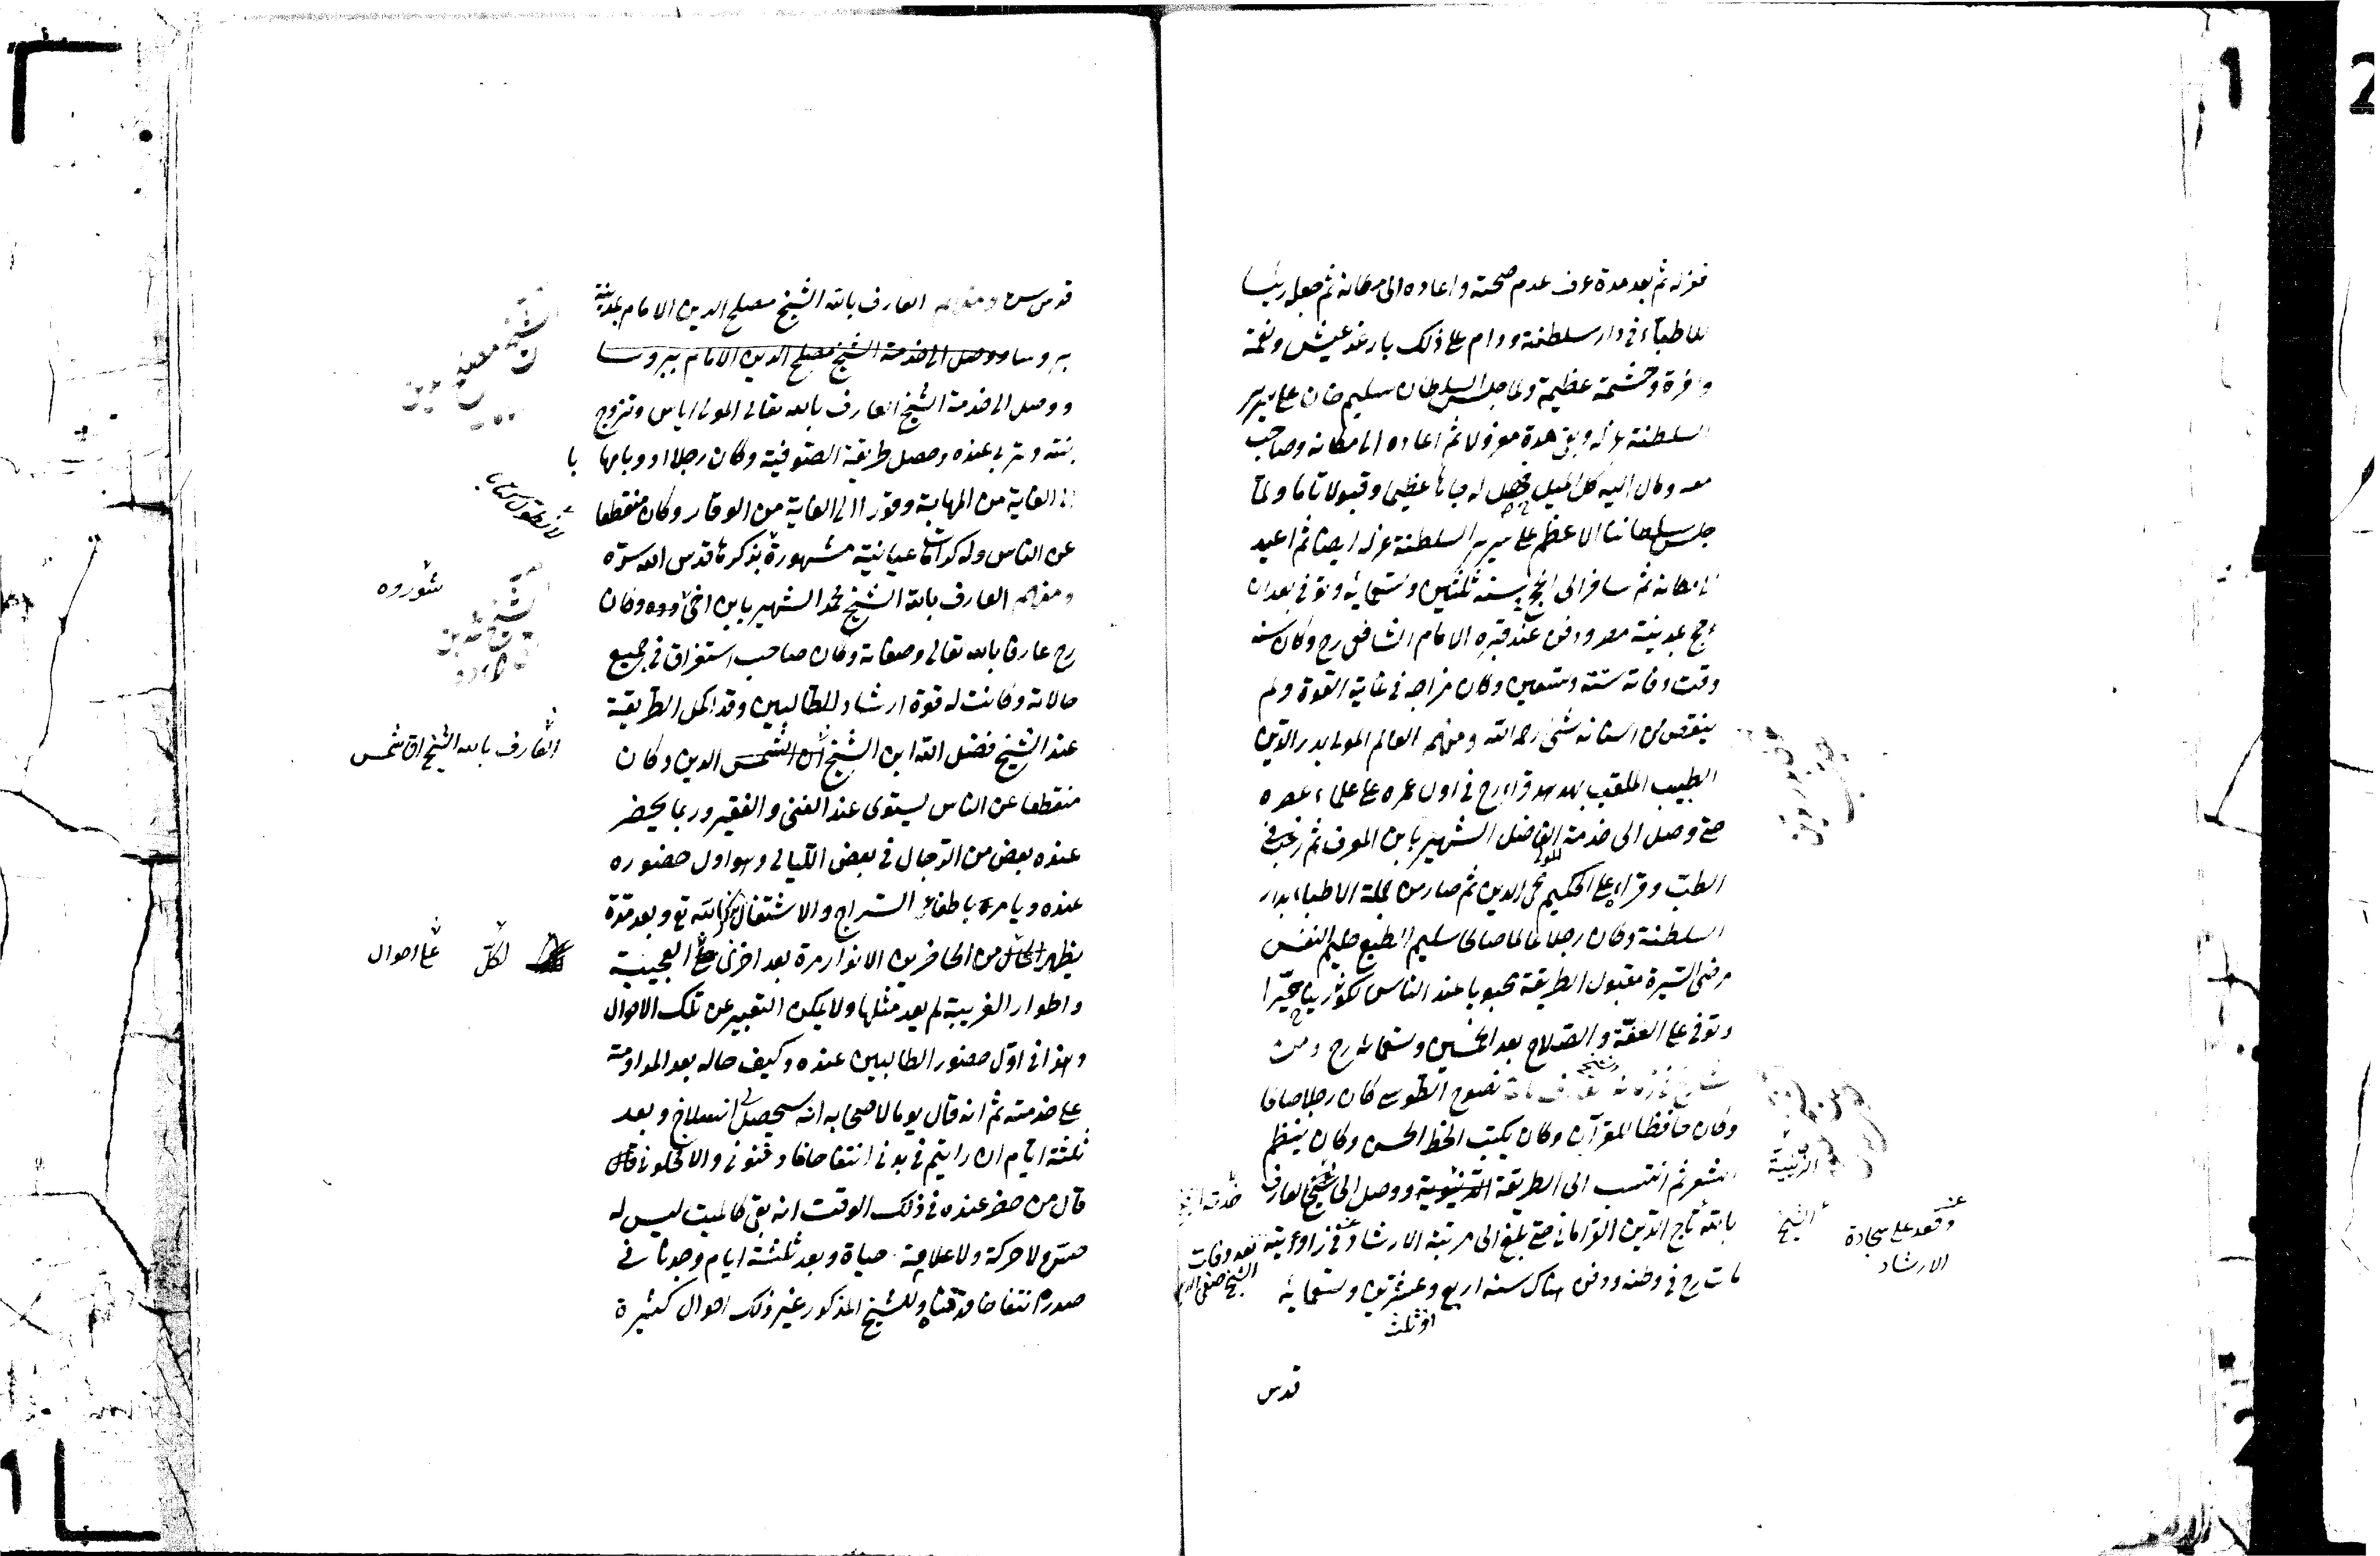 فعزله ثم بعد مدة عرف عدم صحته واعاده الى مكانه ثم جعله رئيسا
للاطباء في دار سلطنته ودام على ذلك بارغد عيش ونعمة
وافرة وحشمة عظيمة ولما جلس السلطان سليم خان على سرير
السلطنة عزله وبقى مدة معزولا ثم اعاده الى مكانه وصاحب
معه ومال اليه كل الميل فحصل له جاها عظيما وقبولا تاما ولما
جلس سلطاننا الاعظم على سرير السلطنة عزله ايضا ثم اعيد
الى مكانه ثم سافر الى الحج سنة ثلثين وتسعمائة وتوفى بعد ان
حج بمدينة مصر ودفن عند قبره الامام الشافعى رح وكان سنه
وقت وفاته ستة وتسعين وكان مزاجه في غاية القوة ولم
ينقص من اسنانه شئ رحمه الله ومنهم العالم المولى بدر الدين
الطبيب الملقب بهدهد قرا رح في اول عمره على علماء عصره
حتى وصل الى خدمة المولى الفاضل الشهير بابن المعرف ثم رغب في
الطب وقراء على الحكيم محى الدين ثم صار من جملة الاطباء بدار
السلطنة وكان رجلا عالما صالحا سليم الطبع حليم النفس
مرضى السيرة مقبول الطريقة محبوبا عند الناس لكونه خيرا
وتوفى على العفة والصلاح بعد الخمسين وتسعمائة رح ومن
نصوح الطوسى كان رجلا صالحا
وكان حافظا للقرآن وكان يكتب الخط الحسن وكان ينظم
الشعر ثم انتسب الى الطريقة الزينية ووصل الى خدمة الشيخ العارف
بالله الشيخ تاج الدين القرامانى حتى بلغ الى مرتبة الارشاد وقعد على سجادة الارشاد عنده في زاويته بعد وفات الشيخ صفى الدين
مات رح في وطنه ودفن هناك سنة اربع وعشرين وتسعمائة
او ثلث
قدس
قدس سره ومنهم العارف بالله الشيخ مصلح الدين الامام بمدينة
بروسا ووصل الى خدمة الشيخ مصلح الدين الامام ببروسا
ووصل الى خدمة الشيخ العارف بالله تعالى المولى اياس وتزوج
بنته وتربى عنده وحصل طريقة الصوفية وكان رجلا
الى الغاية من المهابة وقورا الى الغاية من الوقار وكان منقطعا
عن الناس وله كرامات عيانية مشهورة بذكرها قدس الله سره
ومنهم العارف بالله الشيخ محمد الشهير بابن اخى شوروه وكان
رح عارفا بالله تعالى وصفاته وكان صاحب استغراق في جميع
حالاته وكانت له قوة ارشاد للطالبين وقد اكمل الطريقة
عند الشيخ فضل الله ابن العارف بالله الشيخ اق شمس الدين وكان
منقطعا عن الناس يستوى عند الغنى والفقير وربما يحضر
عنده بعض من الرجال في بعض الليالى وهو اول حضوره
عنده ويامره باطفاء السراج والاشتغال بذكر الله تع وبعد مدة
يظهر لكل من الحاضرين الانوار مرة بعد اخرى على احوال العجيبة
واطوار الغريبة لم يعد مثلها ولا يمكن التعبير عن تلك الاحوال
وهذا في اول حضور الطالبين عنده وكيف حاله بعد المداومة
على خدمته ثم انه قال يوما لاصحابه انه سيحصل لى انسلاخ وبعد
ثلثة ايام ان رايتم في بدنى انتفاخا فادفنونى والا فخلونى
قال من حضر عنده في ذلك الوقت انه بقى كالميت ليس له
حس ولا حركة ولا علامة حياة وبعد ثلثة ايام وجدنا في
صدره انتفاخا فدفناه وللشيخ المذكور غير ذلك احوال كثيرة